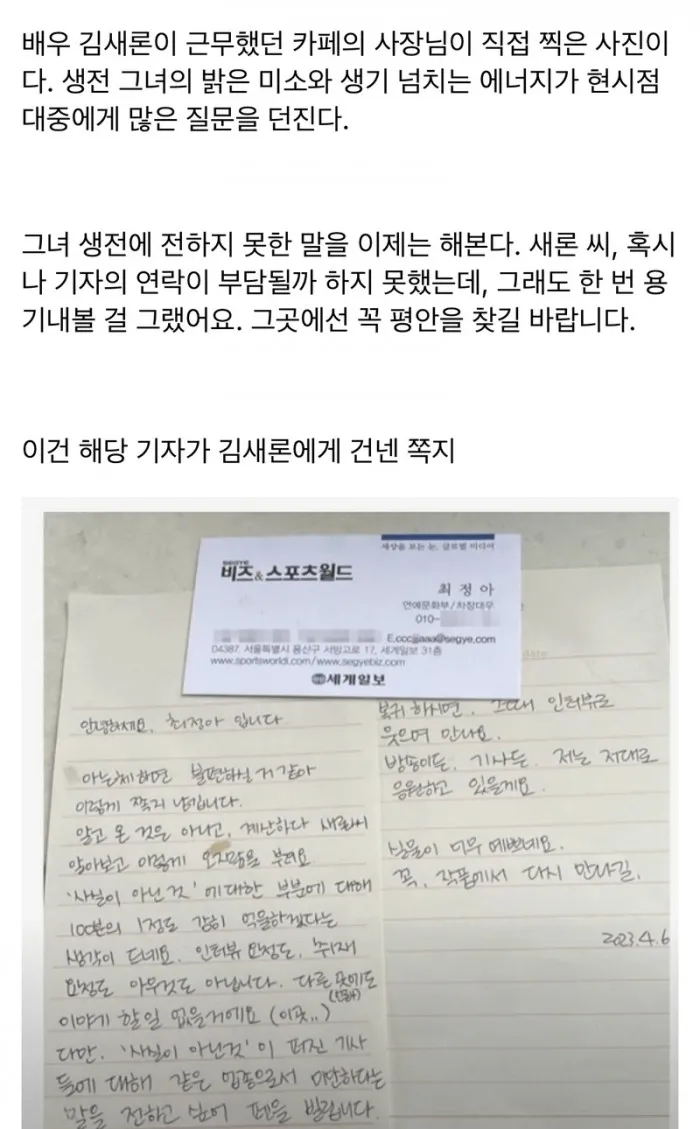 배우 김새론이 근무했던 카페의 사장님이 직접 찍은 사진이
다. 생전 그녀의 밝은 미소와 생기 넘치는 에너지가 현시점
대중에게 많은 질문을 던진다.
그녀 생전에 전하지 못한 말을 이제는 해본다. 새론 씨, 혹시
나 기자의 연락이 부담될까 하지 못했는데, 그래도 한 번 용
기내볼 걸 그랬어요. 그곳에선 꼭 평안을 찾길 바랍니다.
이건 해당 기자가 김새론에게 건넨 쪽지
세상을 보는 눈, 글로벌 미디어
SEGYE
비즈&스포츠월드
최정아
연예문화부/차장대우
010-
E.cccjjaaa@segye.com
04387, 서울특별시 용산구 서빙고로 17, 세계일보 31층
www.sportsworldi.com/www.segyebiz.com
세계일보
안녕하세요, 최정아 입니다
아는체하면 불편하실 거 같아
이렇게 쪽지 남깁니다.
알고 온 것은 아니고, 계산하다 새론씨
알아보고 이렇게 오지랖을 부려요
'사실이 아닌 것'에 대한 부분에 대해
100분의 1정도 감히 억울하겠다는
생각이 드네요. 인터뷰 요청도, 취재
요청도 아무것도 아닙니다. 다른 곳에도
이야기 할 일 없을거에요 (이곳..)
다만, '사실이 아닌것'이 퍼진 기사
들에 대해 같은 업종으로서 미안하다는
말을 전하고 싶어 펜을 빌립니다.
date
복귀 하시면, 그때 인터뷰로
웃으며 만나요.
방송이든, 기사든, 저는 저대로
응원하고 있을게요.
실물이 너무 예쁘네요.
꼭, 작품에서 다시 만나길.
2023.4.6